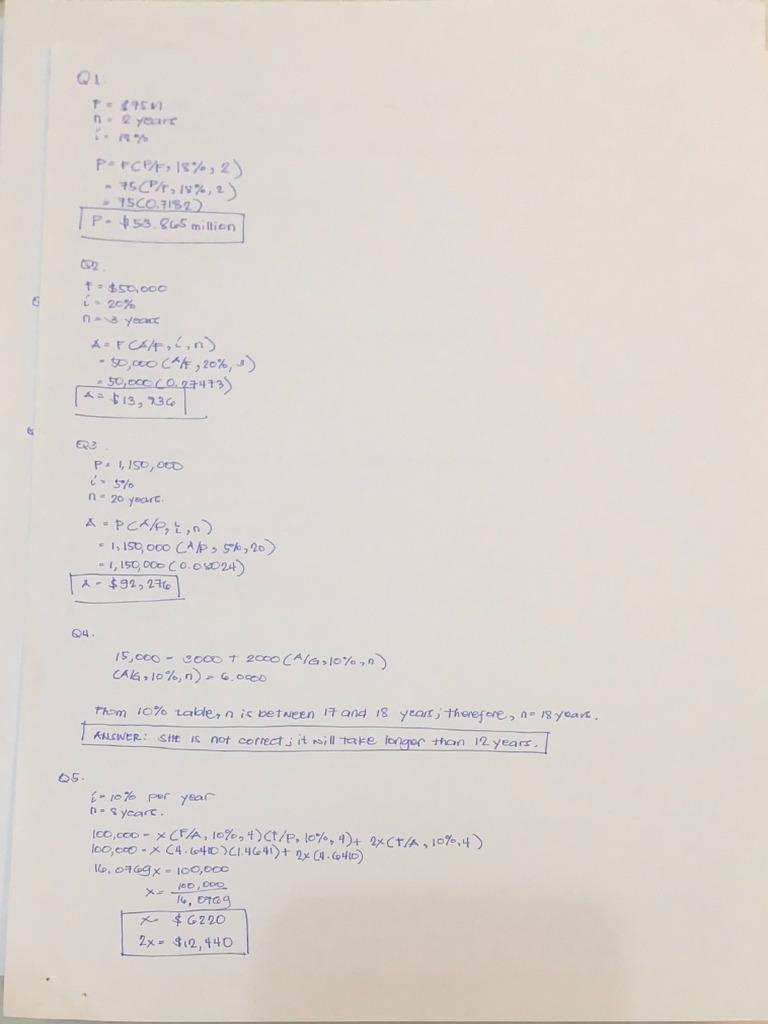 Q1.
F = $75M
n = 2 years
i = 18%
P = F(P/F, 18%, 2)
= 75(P/F, 18%, 2)
= 75(0.7182)
P = $53.865 million
Q2.
F = $50,000
i = 20%
n = 3 years
A = F(A/F, i, n)
= 50,000(A/F, 20%, 3)
= 50,000(0.27473)
A = $13,736
Q3.
P = 1,150,000
i = 5%
n = 20 years.
A = P(A/P, i, n)
= 1,150,000(A/P, 5%, 20)
= 1,150,000(0.08024)
A = $92,276
Q4.
15,000 = 3000 + 2000(A/G, 10%, n)
(A/G, 10%, n) = 6.0000
From 10% table, n is between 17 and 18 years; therefore, n = 18 years.
ANSWER: SHE is not correct; it will take longer than 12 years.
Q5.
i = 10% per year
n = 8 years.
100,000 = x(F/A, 10%, 4)(F/P, 10%, 4) + 2x(F/A, 10%, 4)
100,000 = x(4.6410)(1.4641) + 2x(4.6410)
16.0769x = 100,000
x = 100,000 / 16.0769
x = $6220
2x = $12,440